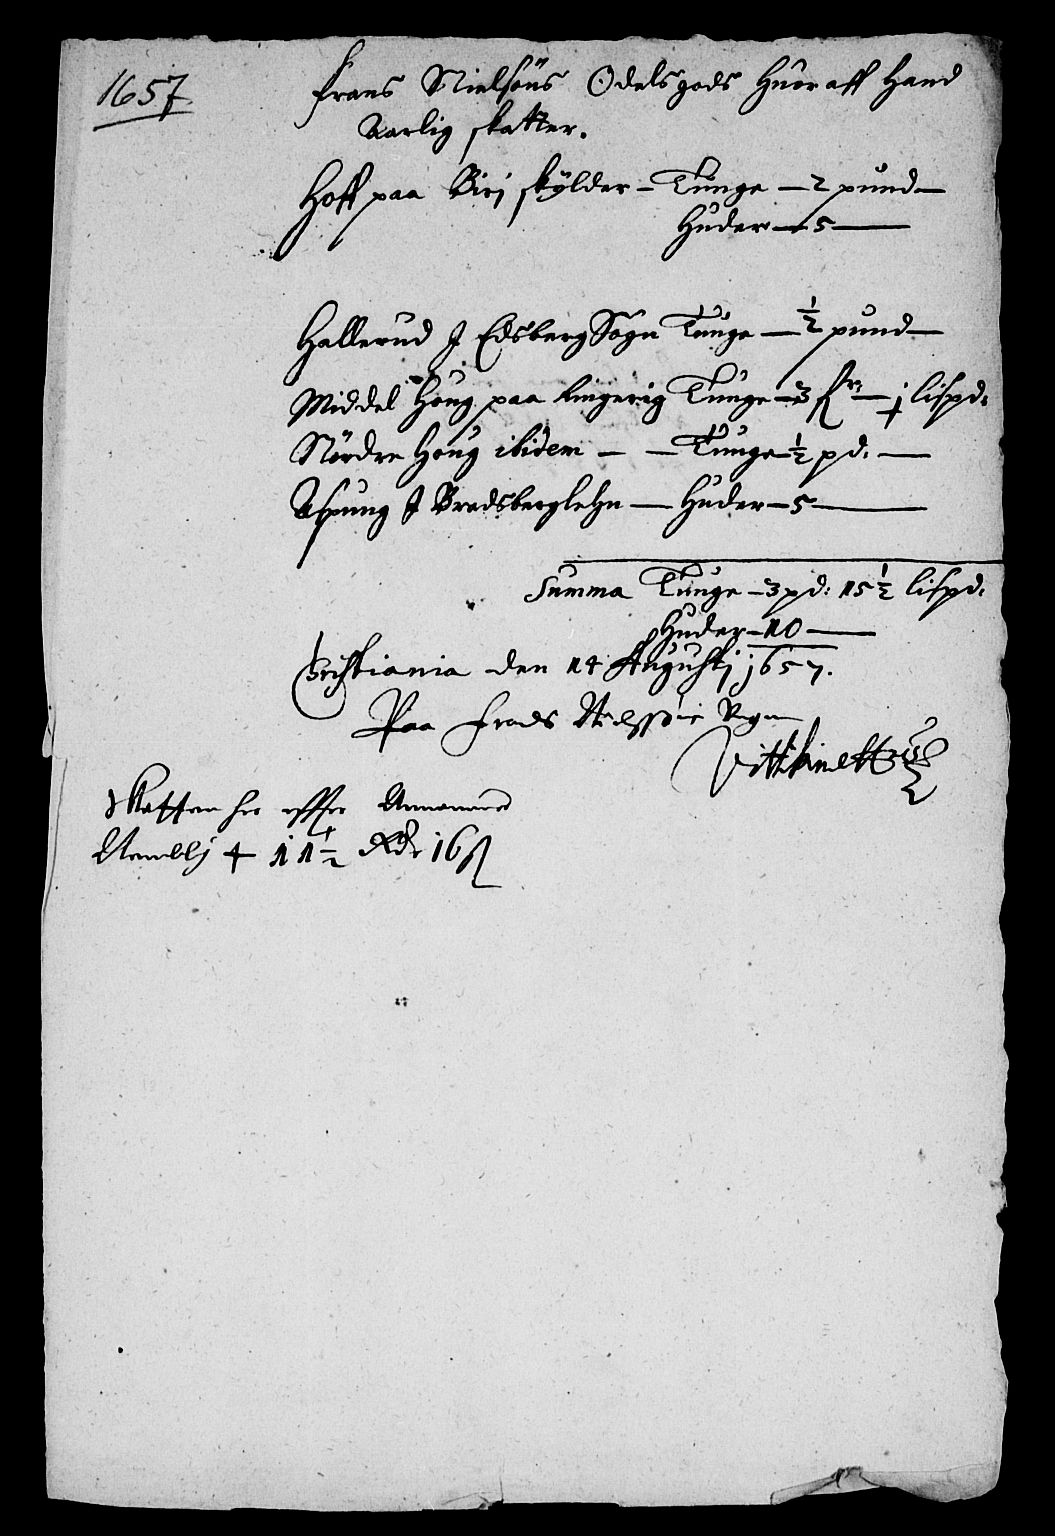 1657
Frans Nielsöns Odelsgods Huoraff Hand
Aarlig skatter.
Hoff paa Birj skÿlder - Tunge - 2 pund -
Huder - 5 -
Hallerud J Edsberg Sogn Tunge - ½ pund -
Middel Houg paa Ringerig Tunge - 3 - j lispd:
Nördre Houg ibidem - - Tunge - ½ pd: -
Aspung J Bradsberglehn - Huder - 5 -
Summa Tunge - 3 pd: 15½ lispd:
Huder - 10 -
Cristiania den 14 Augustj j657.
Paa Frands Vegne
Skatten her effter
Nemblj 11½ Rdr